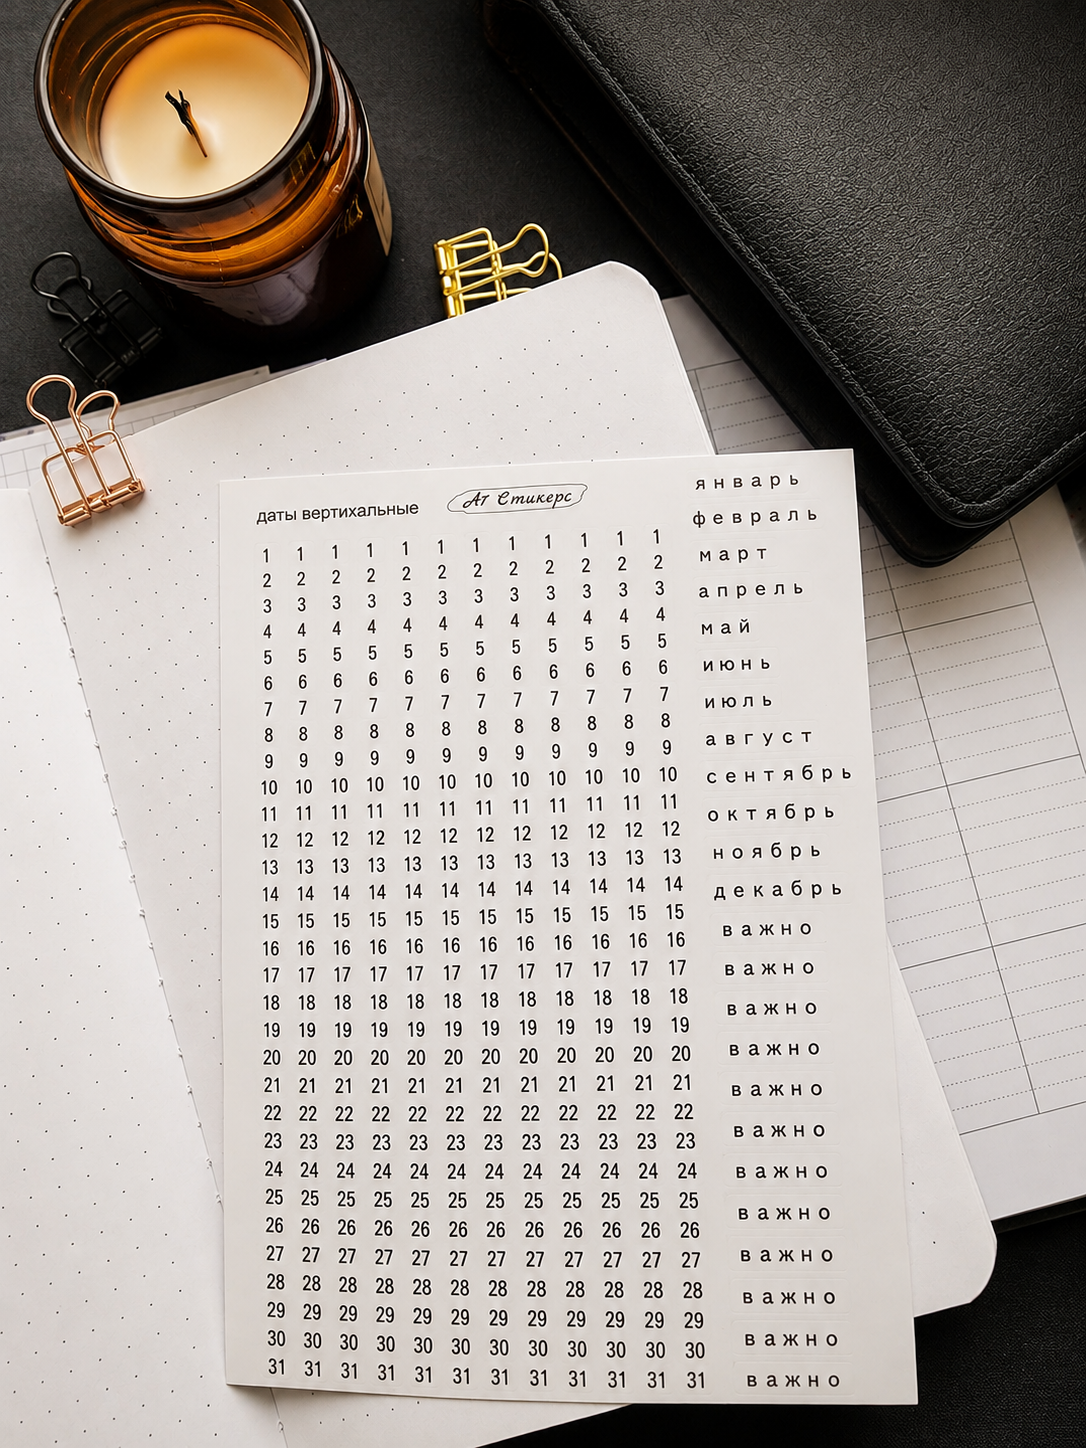 даты вертихальные
Ат Стикерс
1 1 1 1 1 1 1 1 1 1 1 1
2 2 2 2 2 2 2 2 2 2 2 2
3 3 3 3 3 3 3 3 3 3 3 3
4 4 4 4 4 4 4 4 4 4 4 4
5 5 5 5 5 5 5 5 5 5 5 5
6 6 6 6 6 6 6 6 6 6 6 6
7 7 7 7 7 7 7 7 7 7 7 7
8 8 8 8 8 8 8 8 8 8 8 8
9 9 9 9 9 9 9 9 9 9 9 9
10 10 10 10 10 10 10 10 10 10 10 10
11 11 11 11 11 11 11 11 11 11 11 11
12 12 12 12 12 12 12 12 12 12 12 12
13 13 13 13 13 13 13 13 13 13 13 13
14 14 14 14 14 14 14 14 14 14 14 14
15 15 15 15 15 15 15 15 15 15 15 15
16 16 16 16 16 16 16 16 16 16 16 16
17 17 17 17 17 17 17 17 17 17 17 17
18 18 18 18 18 18 18 18 18 18 18 18
19 19 19 19 19 19 19 19 19 19 19 19
20 20 20 20 20 20 20 20 20 20 20 20
21 21 21 21 21 21 21 21 21 21 21 21
22 22 22 22 22 22 22 22 22 22 22 22
23 23 23 23 23 23 23 23 23 23 23 23
24 24 24 24 24 24 24 24 24 24 24 24
25 25 25 25 25 25 25 25 25 25 25 25
26 26 26 26 26 26 26 26 26 26 26 26
27 27 27 27 27 27 27 27 27 27 27 27
28 28 28 28 28 28 28 28 28 28 28 28
29 29 29 29 29 29 29 29 29 29 29 29
30 30 30 30 30 30 30 30 30 30 30 30
31 31 31 31 31 31 31 31 31 31 31 31
январь
февраль
март
апрель
май
июнь
июль
август
сентябрь
октябрь
ноябрь
декабрь
важно
важно
важно
важно
важно
важно
важно
важно
важно
важно
важно
важно